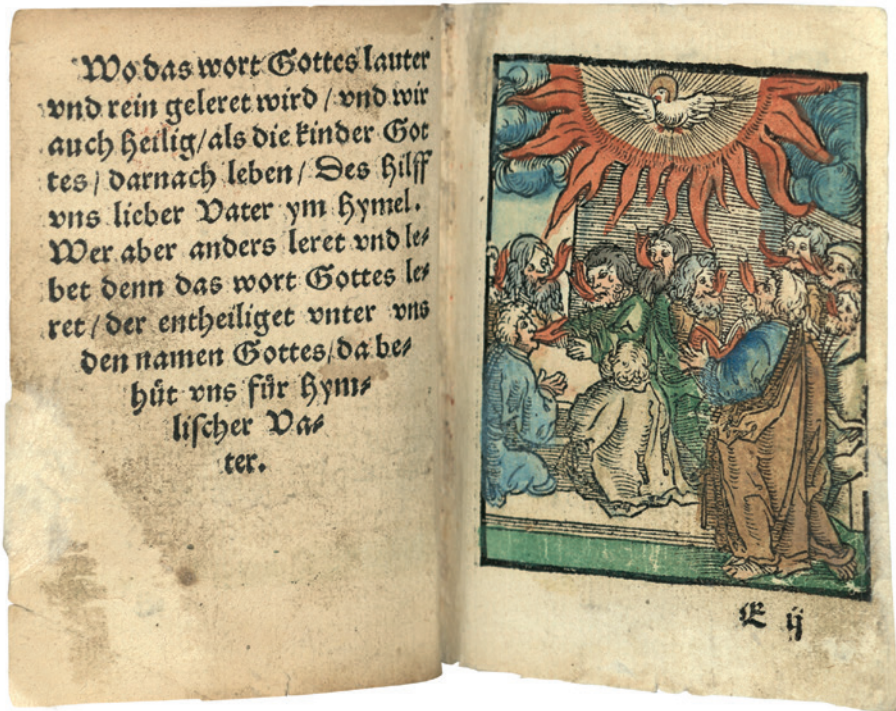 Wo das wort Gottes lauter
vnd rein geleret wird / vnd wir
auch heilig / als die kinder Got
tes / darnach leben / Des hilff
vns lieber Vater ym hymel.
Wer aber anders leret vnd le⸗
bet denn das wort Gottes le⸗
ret / der entheiliget vnter vns
den namen Gottes / da be⸗
hüt vns für hym⸗
lischer Va⸗
ter.
E ij